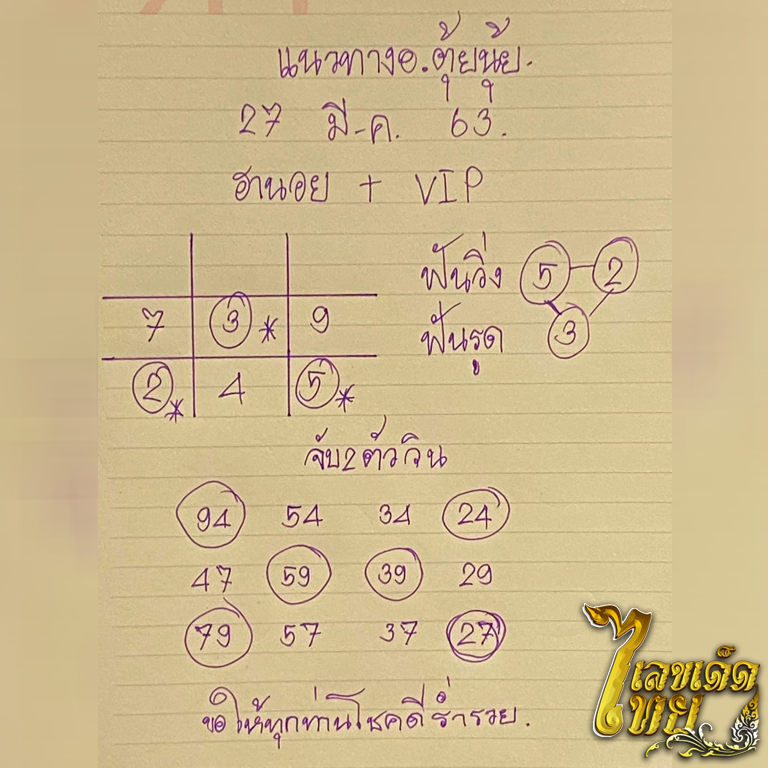 แนวทางอ.ตุ้ยนุ้ย.
27 มี-ค. 63.
ฮานอย + VIP
ฟันวิ่ง 5 2
7 3 * 9
ฟันรูด 3
2 * 4 5 *
จับ2ตัววิน
94 54 34 24
47 59 39 29
79 57 37 27
ขอให้ทุกท่านโชคดีร่ำรวย.
เลขเด็ดไทย